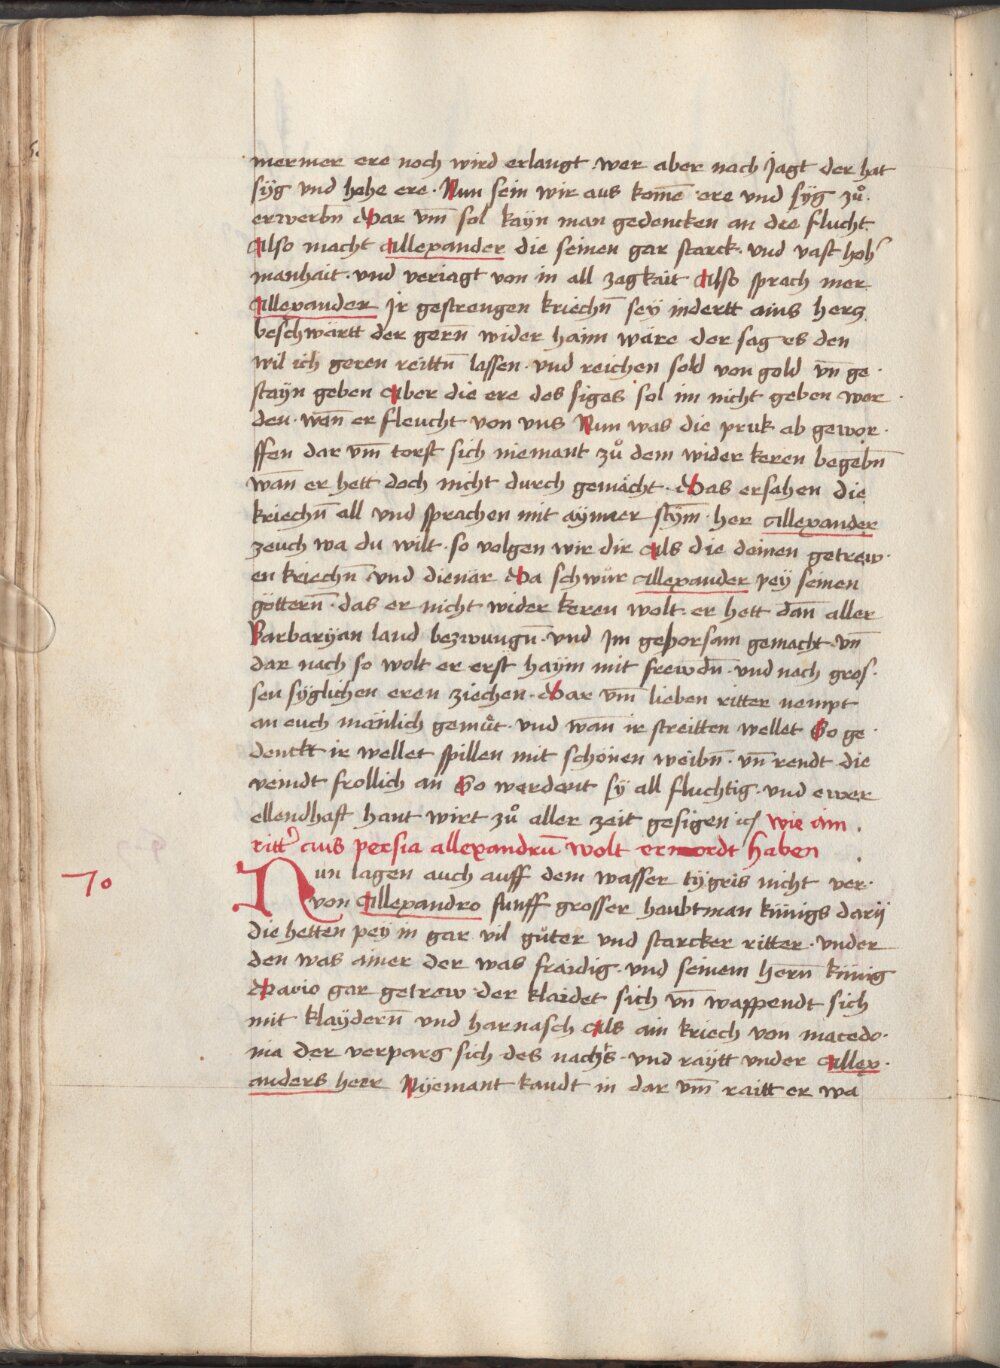 mermer ere noch wird erlangt wer aber nach Jagt der hat
syͤg vnd hohe ere · Nun sein wir aus kom̅e ere vnd syͤg zuͦ ·
erwerbn̅ Dar vm̅ sol kayn man gedencken an die flucht
Also macht Allexander die seinen gar starck · vnd vast hoh
manhait · vnd veriagt von in all zagkait Also sprach mer
Allexander Jr gestrengen kriechn̅ sey indertt ains hercz
beschwärtt der gern̅ wider haim wäre der sag es den
wil ich geren reittn̅ lassen · vnd reichen sold von gold vn̅ ge ·
stayn geben Aber die ere des siges sol im nicht geben wer ·
den · wan̅ er fleucht von vns Nun was die pruk ab gewor ·
ffen dar vm̅ torst sich niemant zuͦ dem wider keren begebn̅
wan̅ er hett doch nicht durch gemächt · Das ersahen die
kriechn̅ all vnd sprachen mit aymer stym̅ · her Allexander
zeuch wa du wilt · so volgen wir dir Als die deinen getrew ·
en kriechn̅ vnd dienär Da schwuͤr Allexander pey seinen
göttern̅ · das er nicht wider keren wolt · er hett dan̅ aller
Barbaryan land bezwungn̅ · vnd Jm gehorsam gemacht · vn̅
dar nach so wolt er erst haym mit frewdn̅ · vnd nach gros ·
sen syglichen eren ziechen · Dar vm̅ lieben ritter nempt
an euch mänlich gemuͤt · vnd wan̅ ir streitten wellet So ge ·
denckt ir wellet spillen mit schönen weibn̅ · vn̅ rendt die
veindt frollich an̅ So werdent sy all fluchtig · vnd ewer
ellendhaft hant wirt zuͦ aller zeit gesigen ꝛc̃ wie ain ·
ritt̓ aus persia allexandru̅ wolt ermordt haben
70
Nun lagen auch auff dem wasser tygris nicht ver ·
von Allexandro funff grosser haubtman künigs darij
die hetten pey in gar vil guͤter vnd starcker ritter · vnder
den was ainer der was fraidig · vnd seinem hern̅ künig
Dario gar getrew · der klaidet sich vn̅ wappendt sich
mit klaydern̅ vnd harnasch Als ain kriech von macedo ·
nia der verparg sich des nachts · vnd raytt vnder Allex ·
anders heer Nyemant kandt in dar vm̅ raitt er wa